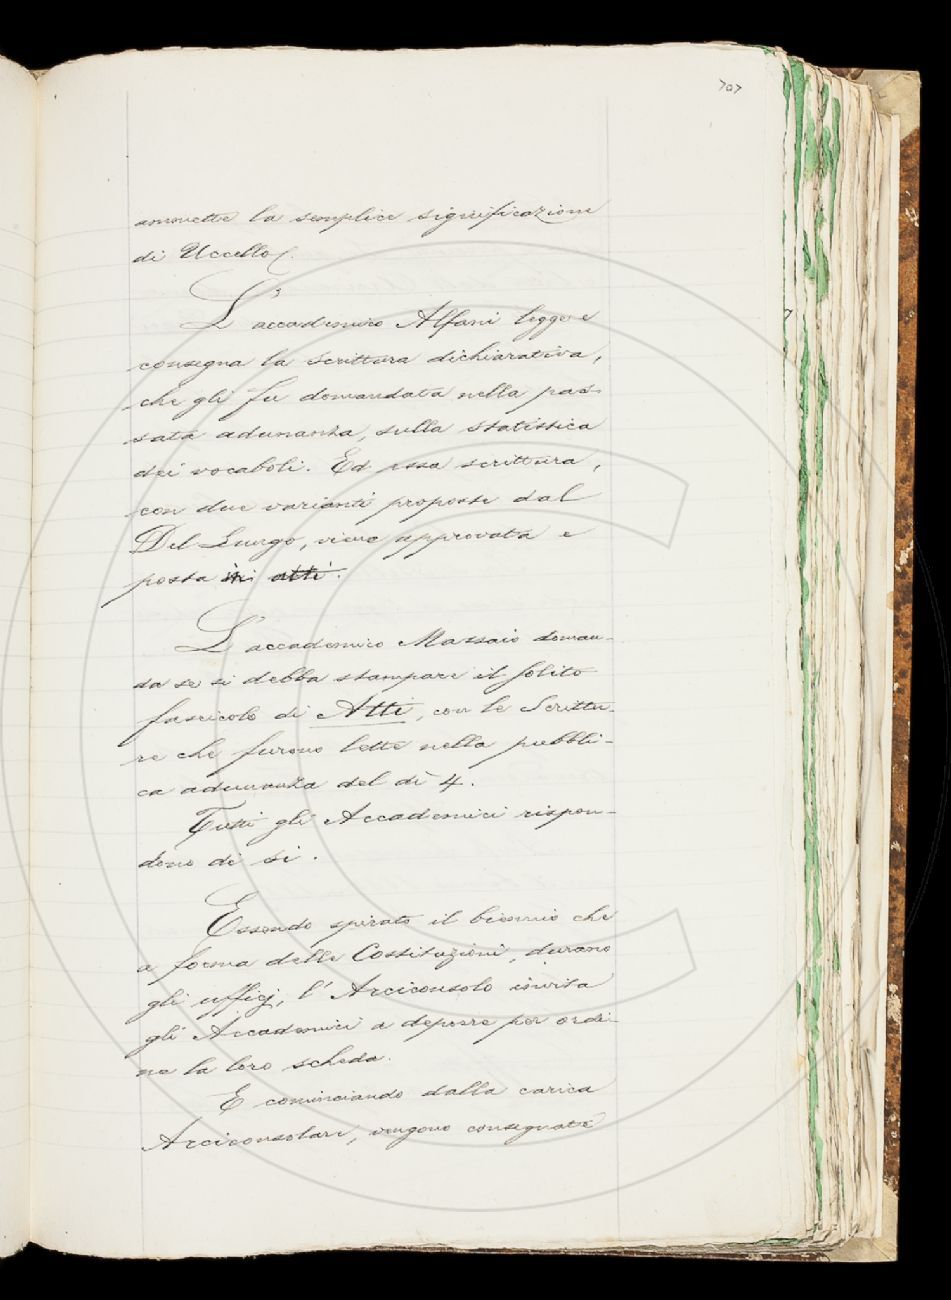 707
ammette la semplice significazione
di Uccello(.
L'accademico Alfani legge e
consegna la scrittura dichiarativa,
che gli fu domandata nella pas-
sata adunanza, sulla statistica
dei vocaboli. Ed essa scrittura,
con due varianti proposte dal
Del Lungo, viene approvata e
posta in atti.
L'accademico Massaio doman-
da se si debba stampare il solito
fascicolo di Atti, con le Scrittu-
re che furono lette nella pubbli-
ca adunanza del dì 4.
Tutti gli Accademici rispon-
dono di sì.
Essendo spirato il biennio che
a forma delle Costituzioni, durano
gli ufficj, l'Arciconsolo invita
gli Accademici a deporre per ordi-
ne la loro scheda.
E cominciando dalla carica
Arciconsolare, vengono consegnate